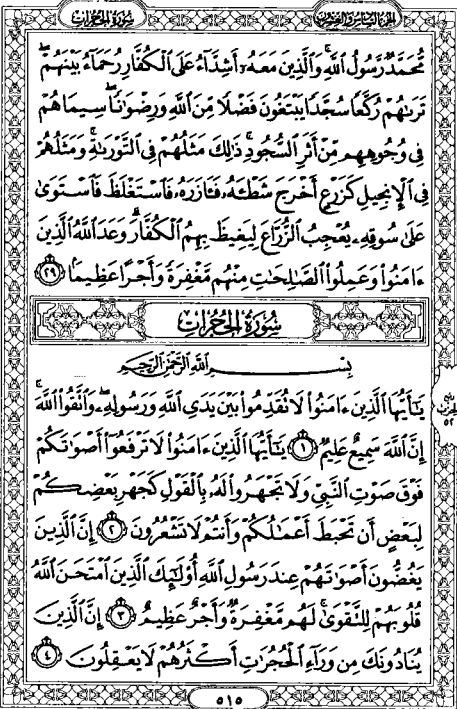 سُورَةُ الْحُجُرَاتِ الجزء السادس والعشرون
مُّحَمَّدٌ رَّسُولُ اللَّهِ ۚ وَالَّذِينَ مَعَهُۥٓ أَشِدَّآءُ عَلَى الْكُفَّارِ رُحَمَآءُ بَيْنَهُمْ ۖ
تَرَىٰهُمْ رُكَّعًا سُجَّدًا يَبْتَغُونَ فَضْلًا مِّنَ اللَّهِ وَرِضْوَٰنًا ۖ سِيمَاهُمْ
فِى وُجُوهِهِم مِّنْ أَثَرِ السُّجُودِ ۚ ذَٰلِكَ مَثَلُهُمْ فِى التَّوْرَىٰةِ ۚ وَمَثَلُهُمْ
فِى الْإِنجِيلِ كَزَرْعٍ أَخْرَجَ شَطْـَٔهُۥ فَـَٔازَرَهُۥ فَاسْتَغْلَظَ فَاسْتَوَىٰ
عَلَىٰ سُوقِهِۦ يُعْجِبُ الزُّرَّاعَ لِيَغِيظَ بِهِمُ الْكُفَّارَ ۗ وَعَدَ اللَّهُ الَّذِينَ
ءَامَنُوا۟ وَعَمِلُوا۟ الصَّٰلِحَٰتِ مِنْهُم مَّغْفِرَةً وَأَجْرًا عَظِيمًۢا ٢٩
سُورَةُ الْحُجُرَاتِ
بِسْمِ اللَّهِ الرَّحْمَٰنِ الرَّحِيمِ
يَٰٓأَيُّهَا الَّذِينَ ءَامَنُوا۟ لَا تُقَدِّمُوا۟ بَيْنَ يَدَىِ اللَّهِ وَرَسُولِهِۦ ۖ وَاتَّقُوا۟ اللَّهَ ۚ
إِنَّ اللَّهَ سَمِيعٌ عَلِيمٌ ١ يَٰٓأَيُّهَا الَّذِينَ ءَامَنُوا۟ لَا تَرْفَعُوٓا۟ أَصْوَٰتَكُمْ
فَوْقَ صَوْتِ النَّبِىِّ وَلَا تَجْهَرُوا۟ لَهُۥ بِالْقَوْلِ كَجَهْرِ بَعْضِكُمْ
لِبَعْضٍ أَن تَحْبَطَ أَعْمَٰلُكُمْ وَأَنتُمْ لَا تَشْعُرُونَ ٢ إِنَّ الَّذِينَ
يَغُضُّونَ أَصْوَٰتَهُمْ عِندَ رَسُولِ اللَّهِ أُو۟لَٰٓئِكَ الَّذِينَ امْتَحَنَ اللَّهُ
قُلُوبَهُمْ لِلتَّقْوَىٰ ۚ لَهُم مَّغْفِرَةٌ وَأَجْرٌ عَظِيمٌ ٣ إِنَّ الَّذِينَ
يُنَادُونَكَ مِن وَرَآءِ الْحُجُرَٰتِ أَكْثَرُهُمْ لَا يَعْقِلُونَ ٤
٥١٥